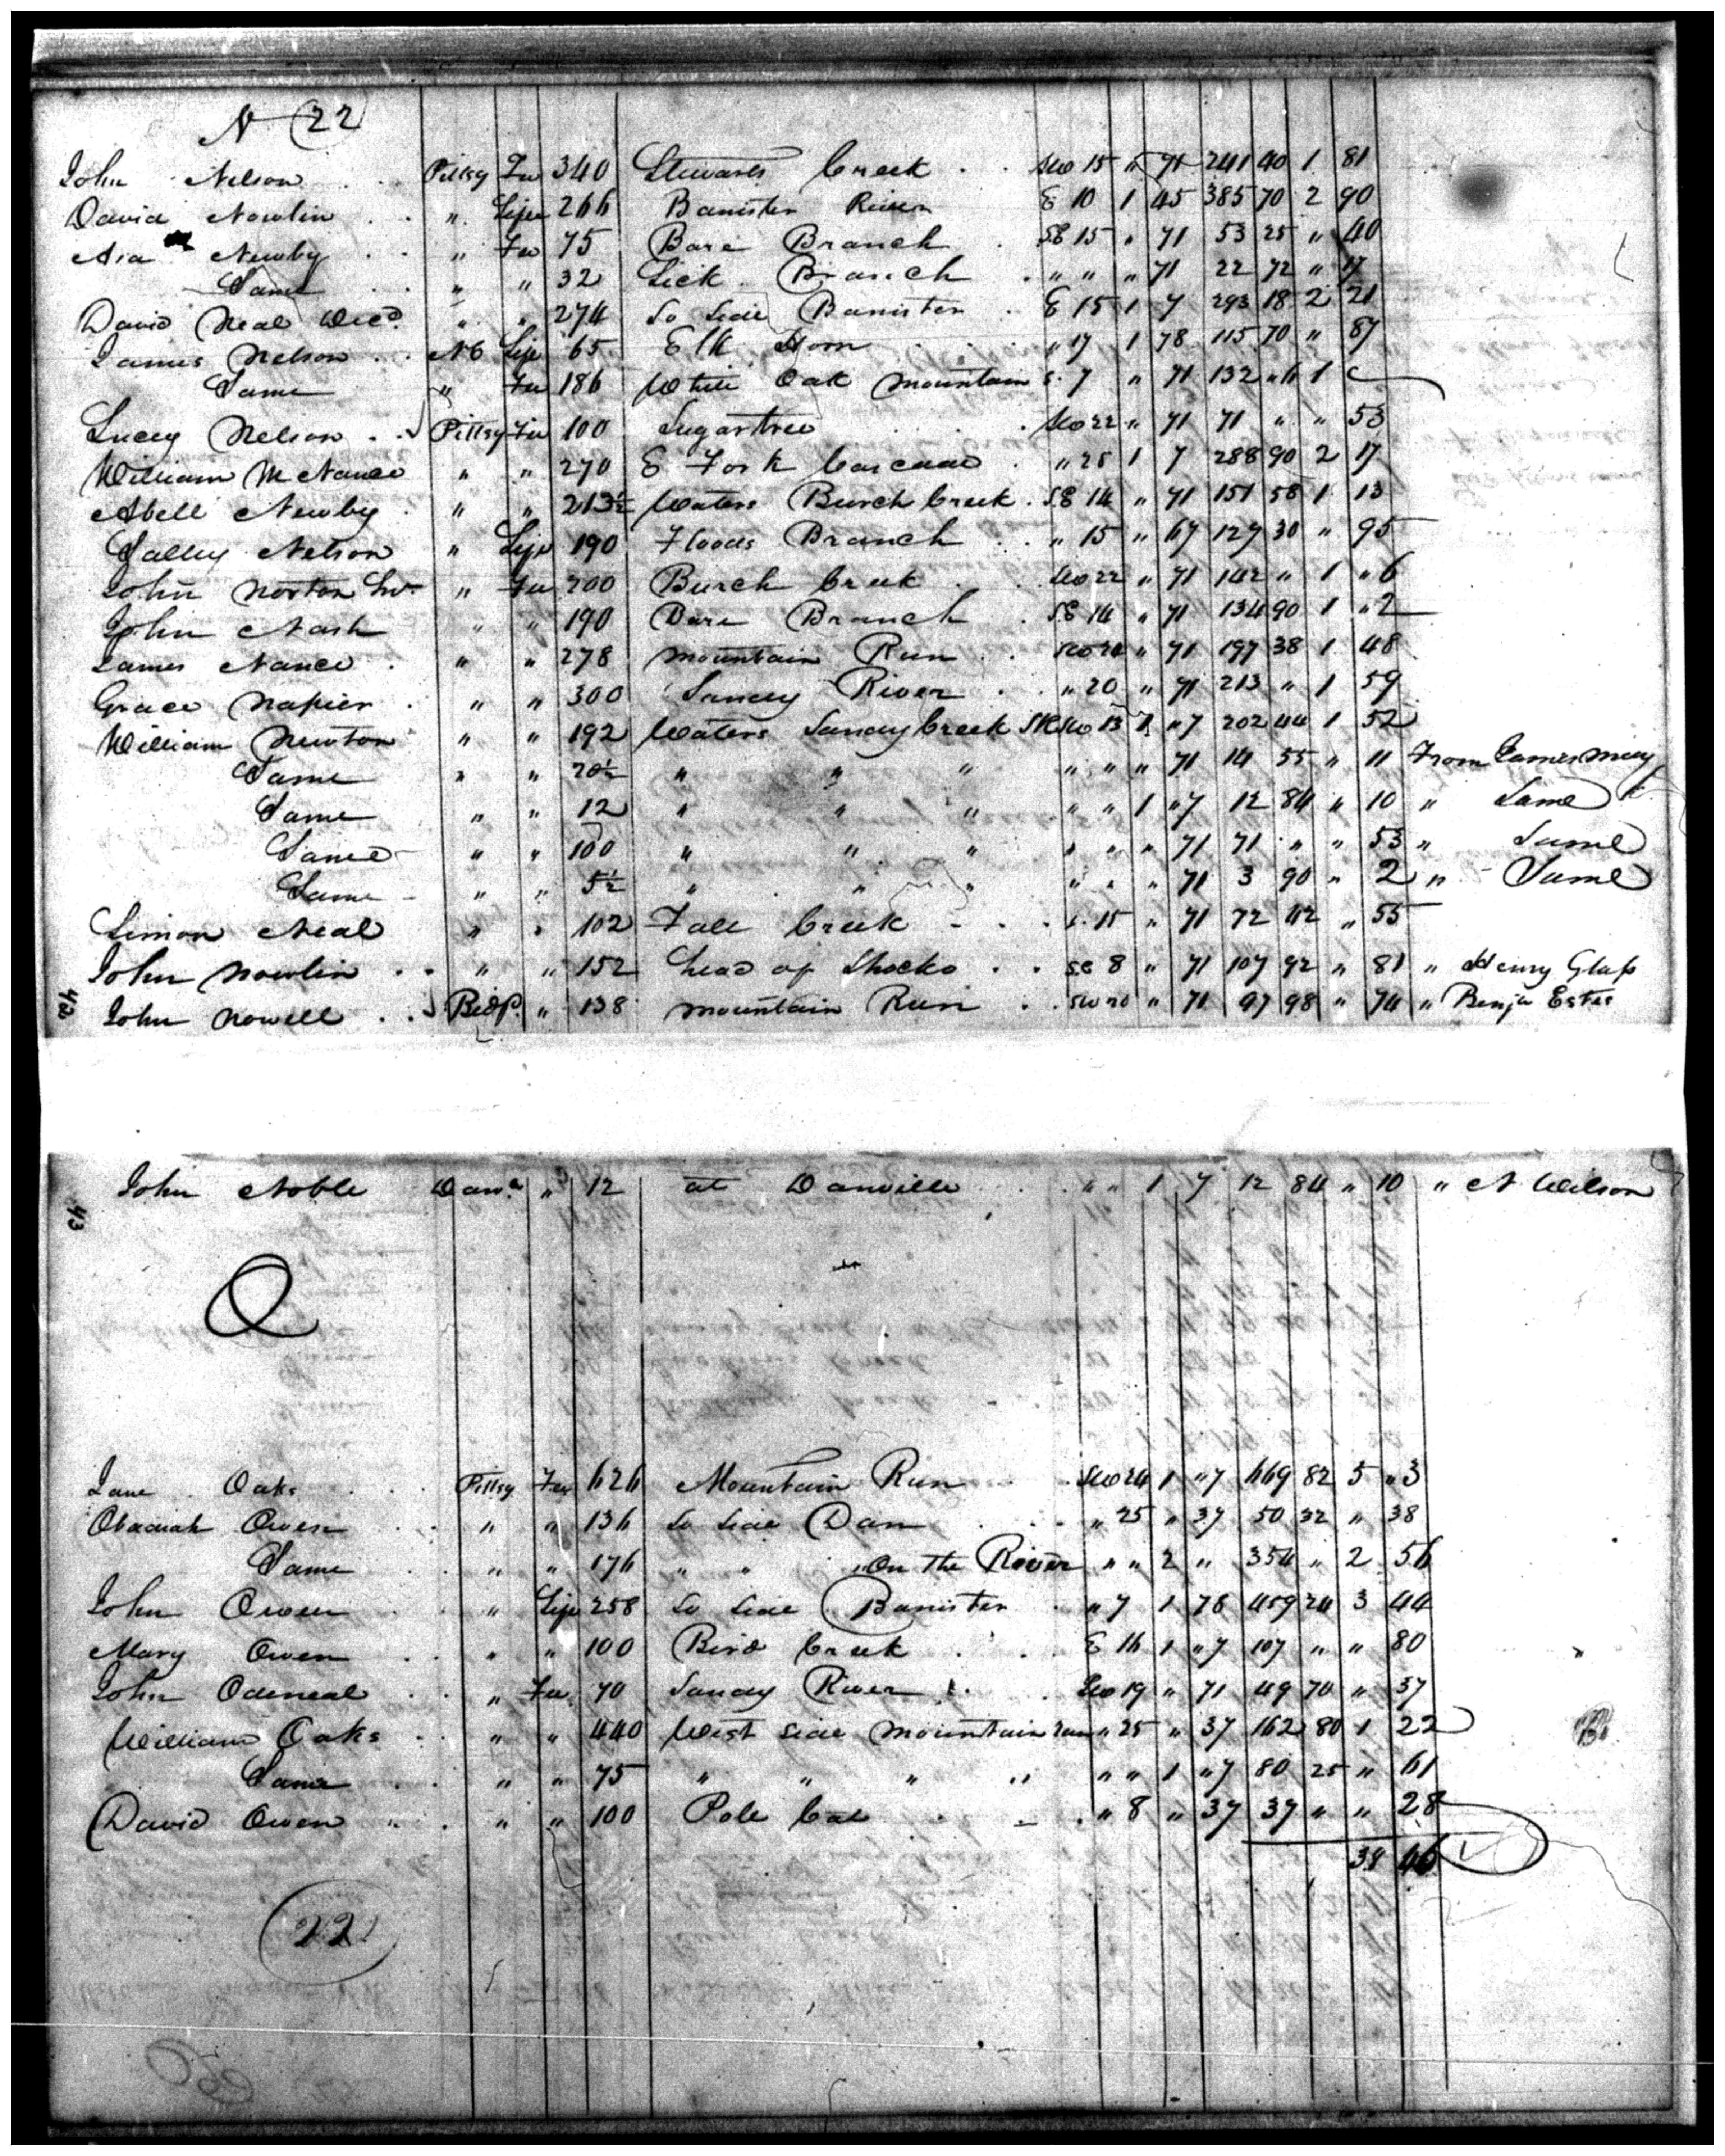 N 22
John Nelson Pittsy Fee 340 Stewarts Creek SW 15 " 71 241 40 1 81
David Nowlin " Life 266 Banister River E 10 1 45 385 70 2 90
Asa Newby " Fee 75 Bare Branch SE 15 " 71 53 25 " 40
Same " " 32 Lick Branch " " " 71 22 72 " 17
David Neal Decd " " 274 So Side Banister E 15 1 7 293 18 2 21
James Nelson NC Life 65 Elk Horn " 17 1 78 115 70 " 87
Same " Fee 186 White Oak Mountain S. 7 " 71 132 "6 1
Lucey Nelson Pittsy Fee 100 Sugartree SW 22 " 71 71 " " 53
William McNance " " 270 E Fork Cascade " 25 1 7 288 90 2 17
Abell Newby " " 213½ Waters Burch Creek SE 14 " 71 151 58 1 13
Salley Nelson " Life 190 Floods Branch " 15 " 67 127 30 " 95
John Norton Sr. " Fee 200 Burch Creek SW 22 " 71 142 " 1 "6
John Nash " " 190 Bare Branch SE 14 " 71 134 90 1 "2
James Nance " " 278 Mountain Run SW 24 " 71 197 38 1 48
Grace Napier " " 300 Sandy River " 20 " 71 213 " 1 59
William Newton " " 192 Waters Sandy Creek SR SW 13 1 "7 202 44 1 52
Same " " 20½ " " " " " " 71 14 55 " 11 From James May
Same " " 12 " " " " " 1 "7 12 84 " 10 " Same
Same " " 100 " " " " " " 71 71 " " 53 " Same
Same " " 5½ " " " " " " 71 3 90 " 2 " Same
Simon Neal " " 102 Fall Creek S. 15 " 71 72 42 " 55
John Nowlin " " 152 head of Shocko SE 8 " 71 107 92 " 81 " Henry Glass
42 John Nowell Bedf. " 138 Mountain Run SW 20 " 71 97 98 " 74 " Benja Estes
43 John Noble Danve " 12 at Danville " " 1 7 12 84 " 10 " N Wilson
O
Jane Oaks Pittsy Fee 626 Mountain Run SW 24 1 "7 669 82 5 "3
Obadiah Owen " " 136 So Side Dan " 25 " 37 50 32 " 38
Same " " 176 " " On the River " " 2 " 354 " 2 56
John Owen " Life 258 So Side Banister " 7 1 78 459 24 3 44
Mary Owen " " 100 Bird Creek E 16 1 "7 107 " " 80
John Odeneal " Fee 70 Sandy River SW 19 " 71 49 70 " 37
William Oaks " " 440 West Side Mountain run " 25 " 37 162 80 1 22
Same " " 75 " " " " " " 1 "7 80 25 " 61
David Owen " " 100 Pole Cat " 8 " 37 37 " " 28
38 46
22